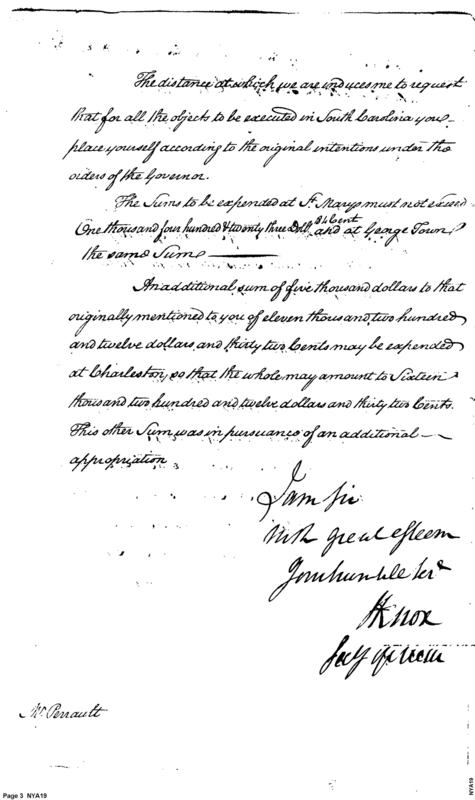 The distance at which we are induces me to request
that for all the objects to be executed in South Carolina you
place yourself according to the original intentions under the
orders of the Governor.
The Sums to be expended at St. Marys must not exceed
One thousand four hundred & twenty three Doll. 84 Cent and at George Town
the same Sum
An additional sum of five thousand dollars to that
originally mentioned to you of eleven thousand, two hundred
and twelve dollars, and thirty two Cents may be expended
at Charleston, so that the whole may amount to Sixteen
thousand two hundred and twelve dollars and thirty two Cents.
This other Sum was in pursuance of an additional
appropriation
I am Sir
with great esteem
Your humble Ser
HKnox
Secy of War
Mr. Perrault
Page 3 NYA19
NYA19